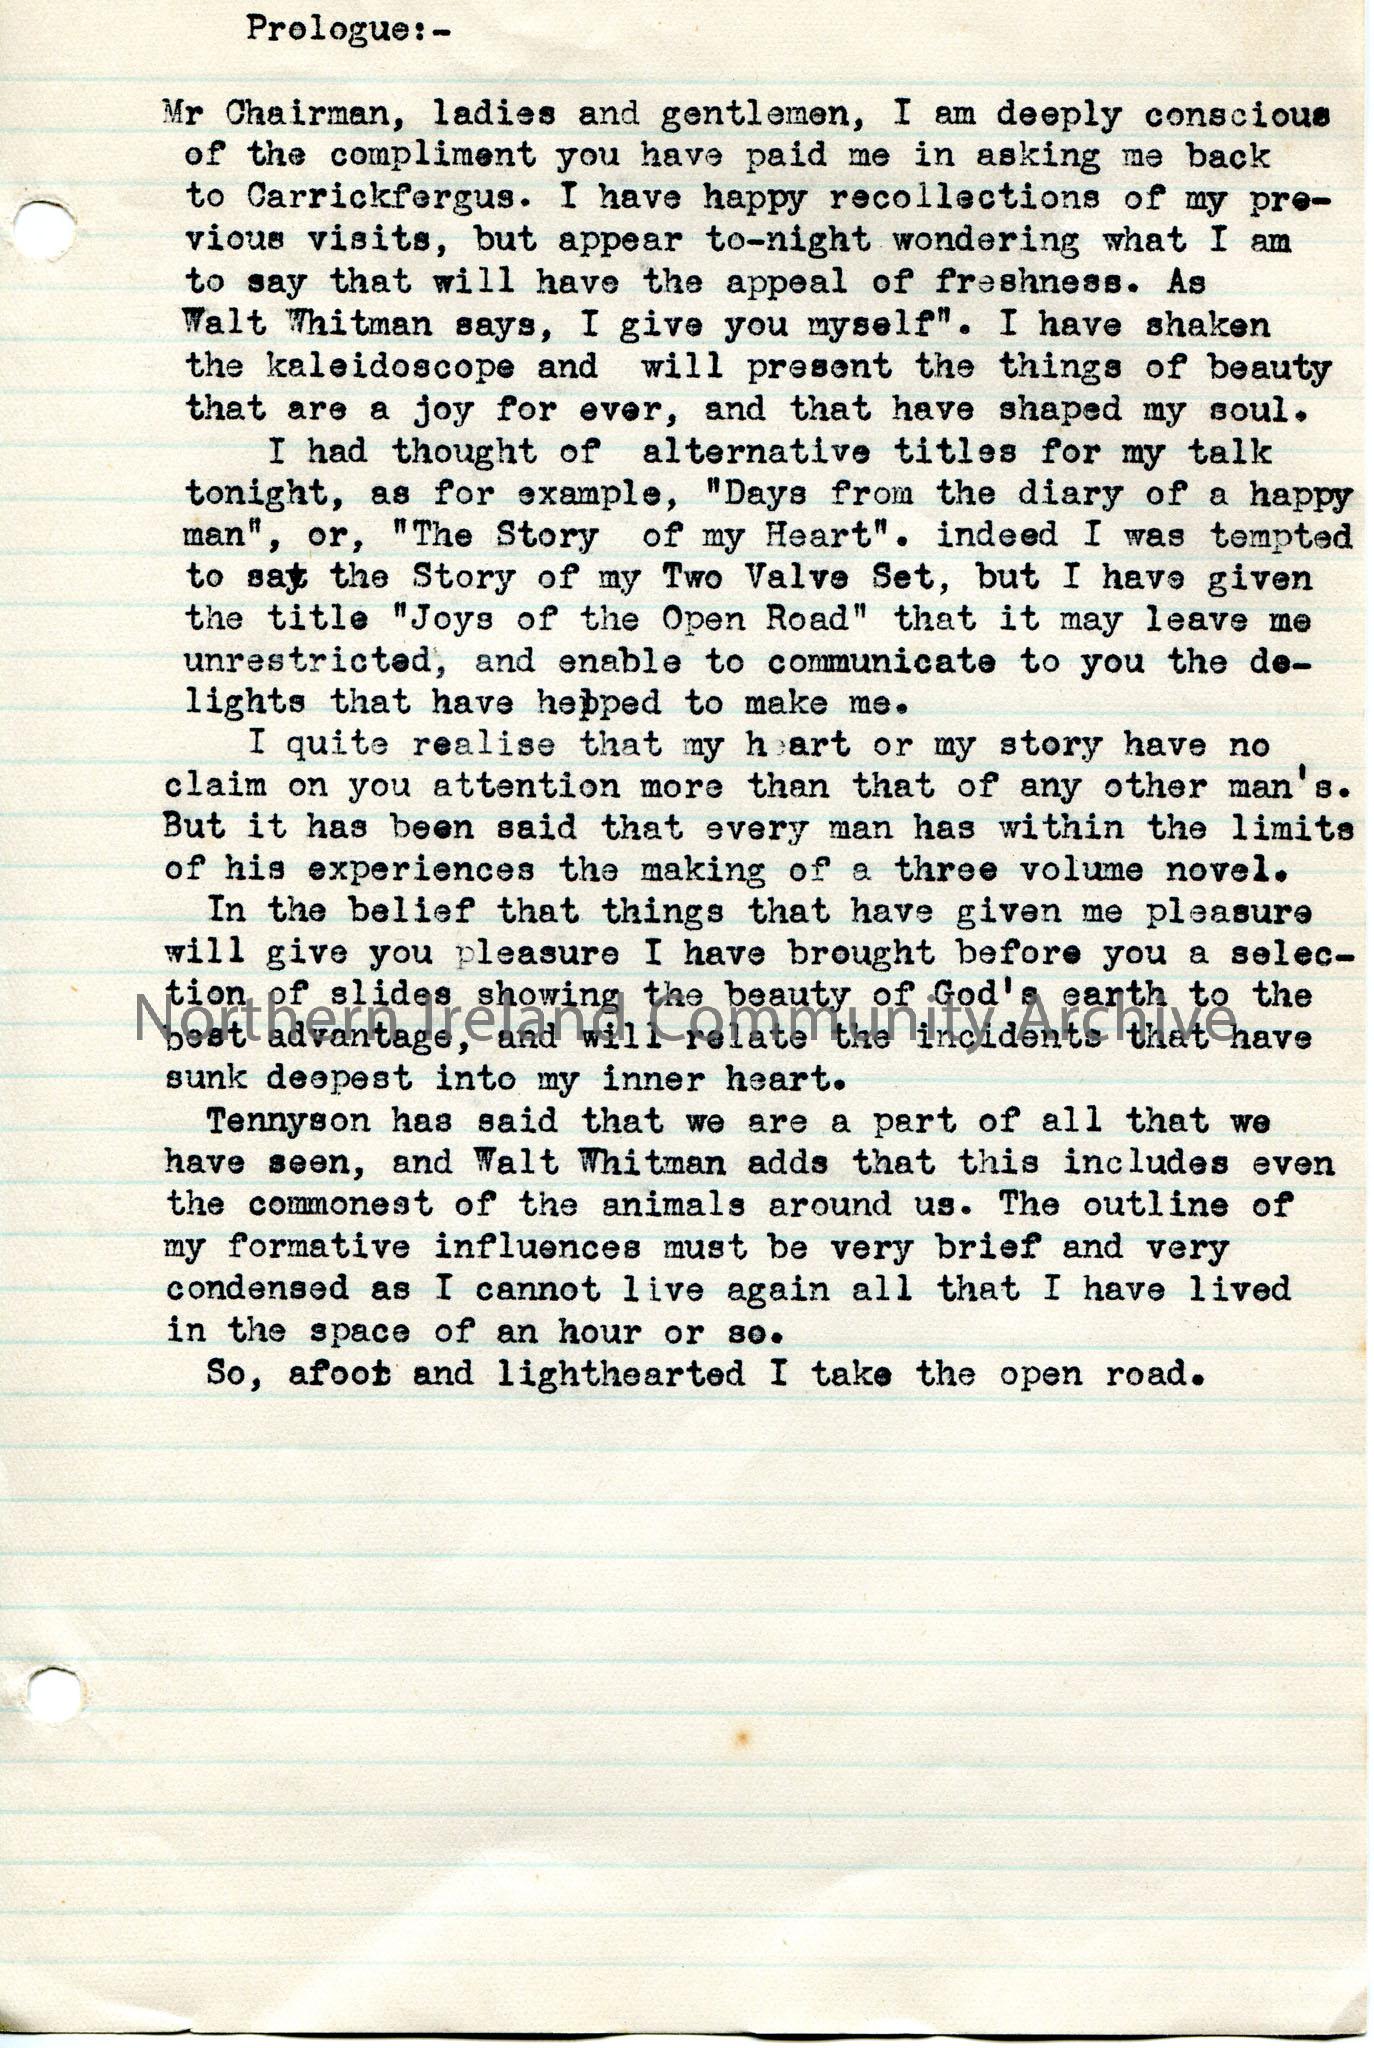 Prologue:-
Mr Chairman, ladies and gentlemen, I am deeply conscious
of the compliment you have paid me in asking me back
to Carrickfergus. I have happy recollections of my pre-
vious visits, but appear to-night wondering what I am
to say that will have the appeal of freshness. As
Walt Whitman says, I give you myself". I have shaken
the kaleidoscope and will present the things of beauty
that are a joy for ever, and that have shaped my soul.
I had thought of alternative titles for my talk
tonight, as for example, "Days from the diary of a happy
man", or, "The Story of my Heart". indeed I was tempted
to say the Story of my Two Valve Set, but I have given
the title "Joys of the Open Road" that it may leave me
unrestricted, and enable to communicate to you the de-
lights that have helped to make me.
I quite realise that my heart or my story have no
claim on you attention more than that of any other man's.
But it has been said that every man has within the limits
of his experiences the making of a three volume novel.
In the belief that things that have given me pleasure
will give you pleasure I have brought before you a selec-
tion of slides showing the beauty of God's earth to the
Northern Ireland Community Archive
best advantage, and will relate the incidents that have
sunk deepest into my inner heart.
Tennyson has said that we are a part of all that we
have seen, and Walt Whitman adds that this includes even
the commonest of the animals around us. The outline of
my formative influences must be very brief and very
condensed as I cannot live again all that I have lived
in the space of an hour or so.
So, afoot and lighthearted I take the open road.